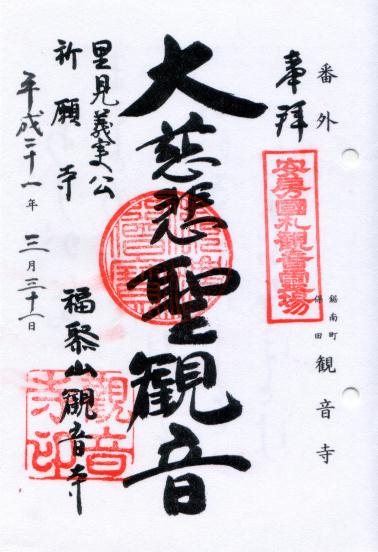 番外
鋸南町
保田
観音寺
奉拝
安房國札観音霊場
大慈悲聖観音
里見義実公
祈願寺
福聚山観音寺
観音
寺印
平成二十一年三月三十一日